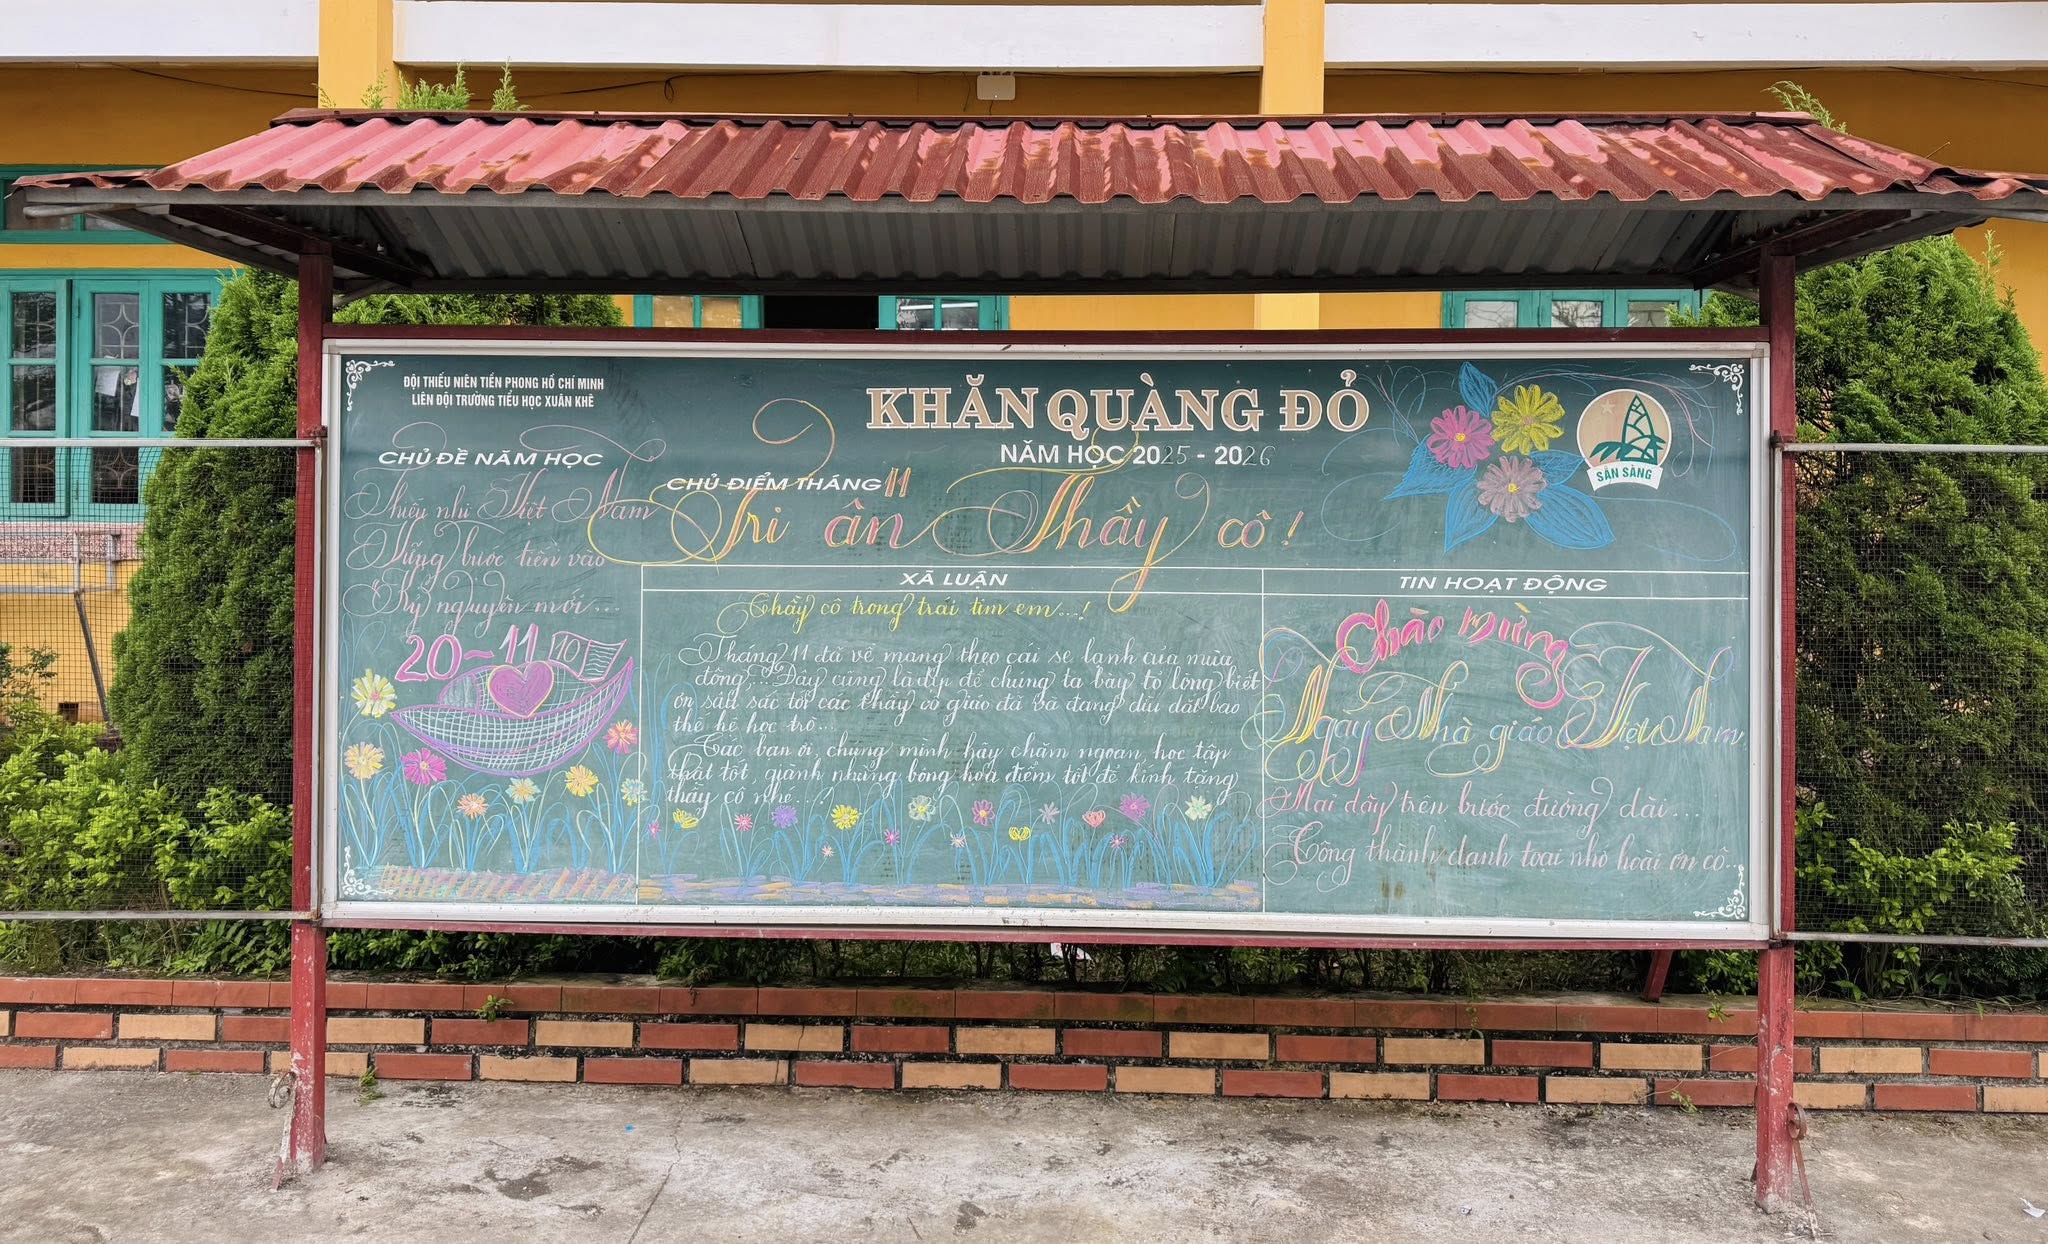 ĐỘI THIẾU NIÊN TIỀN PHONG HỒ CHÍ MINH
LIÊN ĐỘI TRƯỜNG TIỂU HỌC XUÂN KHÊ
KHĂN QUÀNG ĐỎ
NĂM HỌC 2025 - 2026
SẴN SÀNG
CHỦ ĐỀ NĂM HỌC
Thiếu nhi Việt Nam
Vững bước tiến vào
Kỷ nguyên mới...
20-11
CHỦ ĐIỂM THÁNG 11
Tri ân Thầy cô!
XÃ LUẬN
Thầy cô trong trái tim em...!
Tháng 11 đã về mang theo cái se lạnh của mùa
đông,... Đây cũng là dịp để chúng ta bày tỏ lòng biết
ơn sâu sắc tới các thầy cô giáo đã và đang dìu dắt bao
thế hệ học trò...
Các bạn ơi, chúng mình hãy chăm ngoan, học tập
thật tốt, giành những bông hoa điểm tốt để kính tặng
thầy cô nhé...!
TIN HOẠT ĐỘNG
Chào mừng
Ngày Nhà giáo Việt Nam
Mai đây trên bước đường dài...
Công thành danh toại nhớ hoài ơn cô...